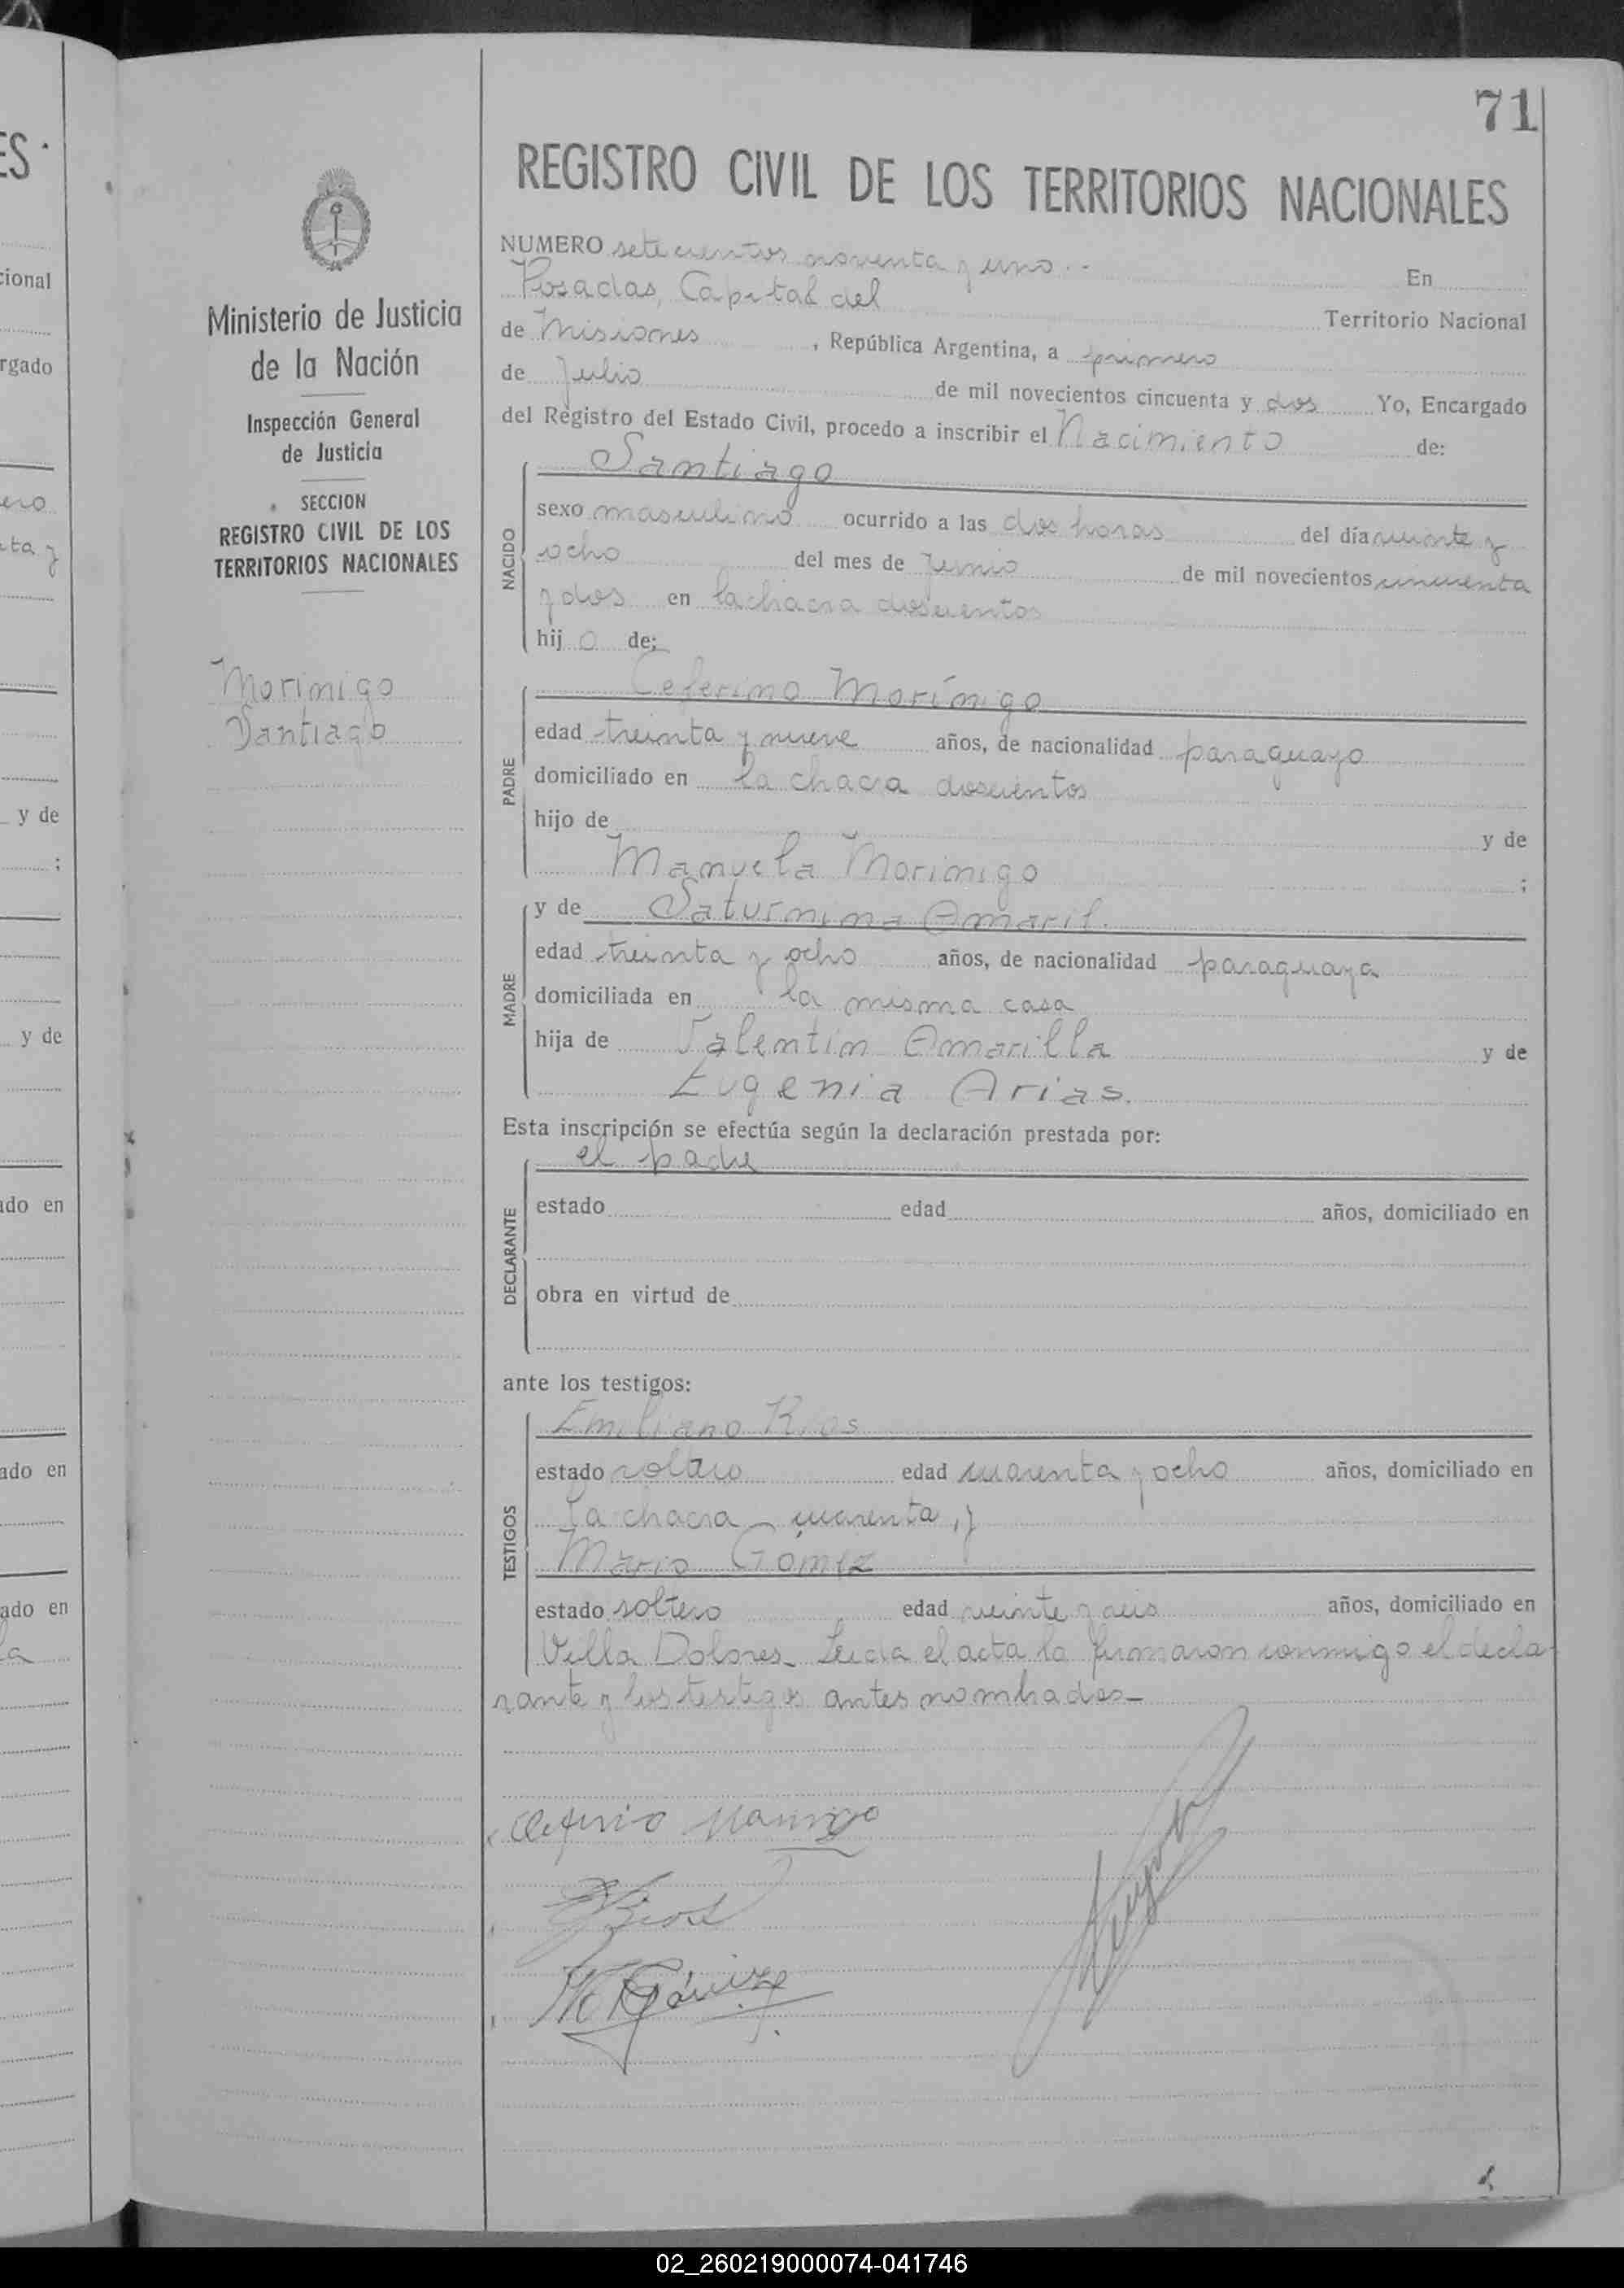 71
REGISTRO CIVIL DE LOS TERRITORIOS NACIONALES
NUMERO setecientos noventa y uno.- En
Posadas, Capital del Territorio Nacional
de Misiones, República Argentina, a primero
de Julio de mil novecientos cincuenta y dos Yo, Encargado
del Registro del Estado Civil, procedo a inscribir el Nacimiento de:
Santiago
sexo masculino ocurrido a las dos horas del día veinte y
ocho del mes de Junio de mil novecientos cincuenta
y dos en la chacra doscientos
hijo de:
NACIDO
Ceferino Morínigo
edad treinta y nueve años, de nacionalidad paraguayo
domiciliado en la chacra doscientos
hijo de y de
Manuela Morinigo ;
PADRE
y de Saturnina Amaril.
edad treinta y ocho años, de nacionalidad paraguaya
domiciliada en la misma casa
hija de Valentín Amarilla y de
Eugenia Arias.
MADRE
Esta inscripción se efectúa según la declaración prestada por:
el padre
estado edad años, domiciliado en
obra en virtud de
DECLARANTE
ante los testigos:
Emiliano Rios
estado soltero edad cuarenta y ocho años, domiciliado en
la chacra cuarenta, y
Mario Gómez
estado soltero edad veinte y seis años, domiciliado en
Villa Dolores. Leida el acta la firmaron conmigo el decla-
rante y los testigos antes nombrados-
TESTIGOS
Ministerio de Justicia
de la Nación
Inspección General
de Justicia
SECCION
REGISTRO CIVIL DE LOS
TERRITORIOS NACIONALES
Morinigo
Santiago
ES
cional
rgado
ero
ta y
y de
;
y de
ado en
ado en
ado en
la
02_260219000074-041746